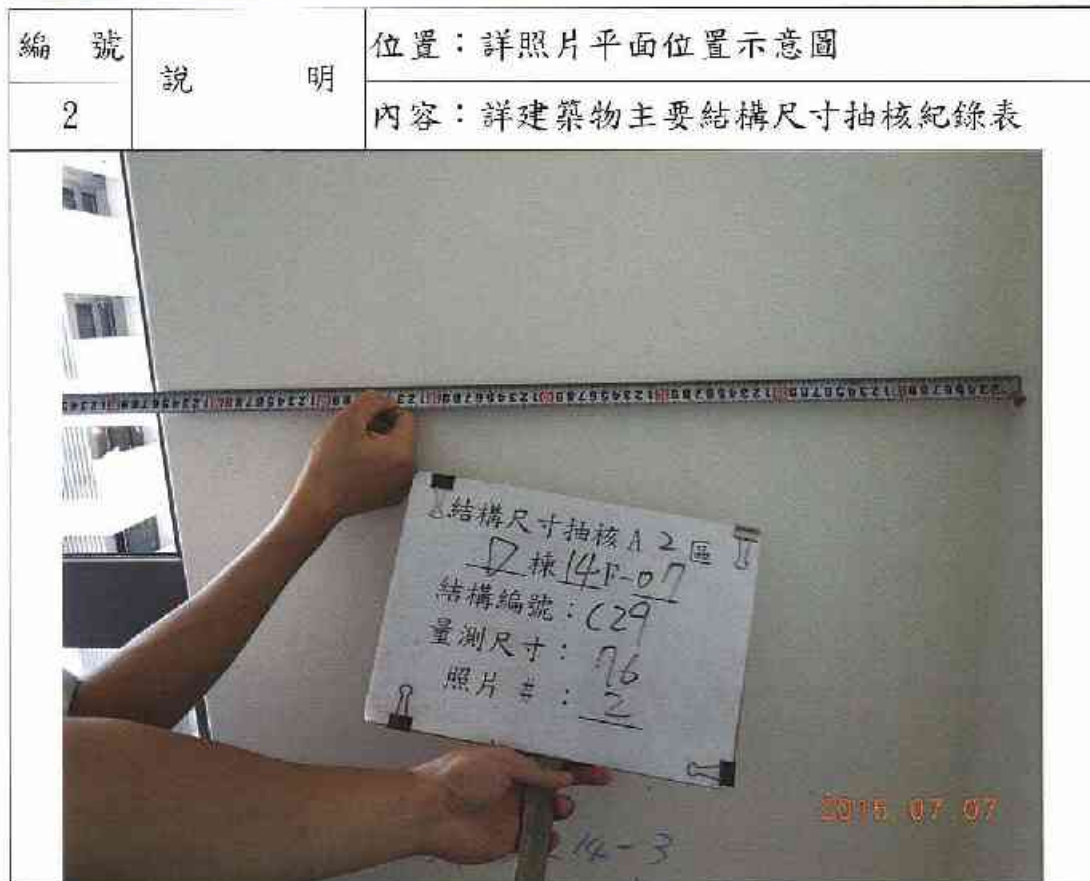 編 號
說 明
位置：詳照片平面位置示意圖
2
內容：詳建築物主要結構尺寸抽核紀錄表
結構尺寸抽核 A 2 區
D 棟 14F-07
結構編號：C29
量測尺寸：76
照片 #：2
07 07
14-3